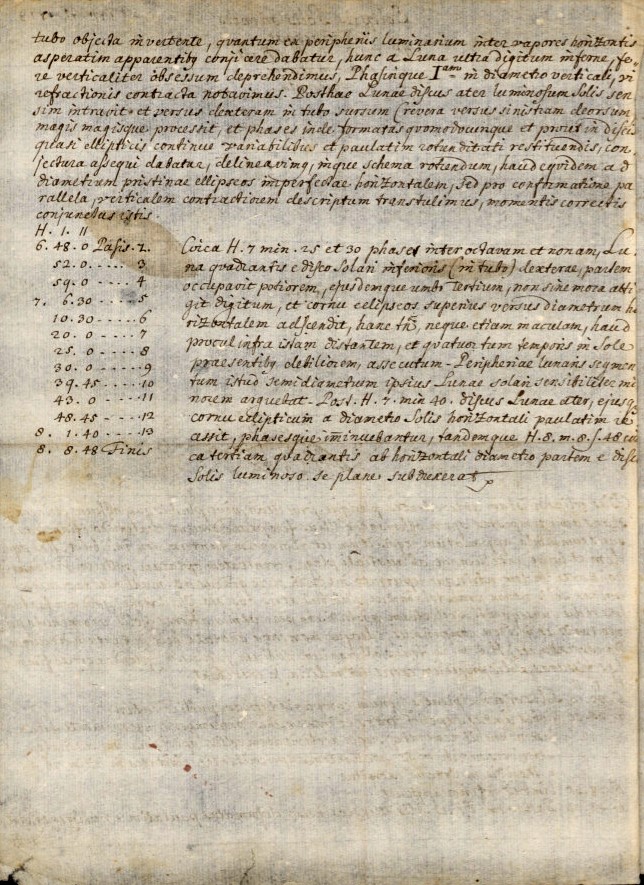 tubo objecta invertente, quantum ex peripheriis luminarium inter vapores horizontis
asperatim apparentibꝫ conjicere dabatur, hunc a Luna ultra digitum inferne, fe-
re verticaliter obsessum deprehendimus, Phasinque Iamo in diametro verticali, vi
refractionis contracta notavimus. Posthac Lunae discus ater luminosum Solis sen
sim intravit et versus dexteram in tubo sursum (revera versus sinistram deorsum
magis magisque processit, et phases inde formatas quomodocunque et prout in disco
quasi elliptico continue variabilibus et paulatim rotunditati restituendis, con
jectura assequi dabatur, delineavimꝫ, inque schema rotundum, haud equidem ad
diametrum pristinae ellipseos imperfectae horizontalem, sed pro confirmatione pa
rallela, verticalem contractiorem descriptum transtulimus, momentis correctis
conjunctus istis.
H. I. II
6. 48. 0 Pasis. 2.
52. 0 . . . . . 3
59. 0 . . . . . 4
7. 6. 30 - - - - 5
10. 30 - - - - . 6
20. 0 - - - - 7
25. 0 - - - - 8
30. 0 - - - - - 9
39. 45 - - - - 10
43. 0 - - - - 11
48. 45 - - - - 12
8. 1. 40 - - - - 13
8. 8. 48 Finis
Circa H. 7 min. 25 et 30 phases inter octavam et nonam, Lu-
na quadrantis e disco Solari inferioris (in tubo) dexterae, partem
occupavit potiorem, ejusdemque umbo tertium, non sine mora atti
git digitum, et cornu eclipseos superius versus diametrum ho
rizontalem adscendit, hanc tn̄, neque etiam maculam, haud
procul infra istam distantem, et quatuor tum temporis in Sole
praesentibꝫ debiliorem, assecutum. Peripheriae lunaris segmen
tum istud semidiametrum ipsius Lunae solari sensibiliter mi
norem arguebat. Post. H. 7. min 40. discus Lunae ater, ejusq
cornu eclipticum a diametro Solis horizontali paulatim re
assit, phasesque iminuebantur, tandemque H. 8. m. 8. s. 48 cir
ca tertiam quadrantis ab horizontali diametro partem e disco
Solis luminoso se plane subduxerat.